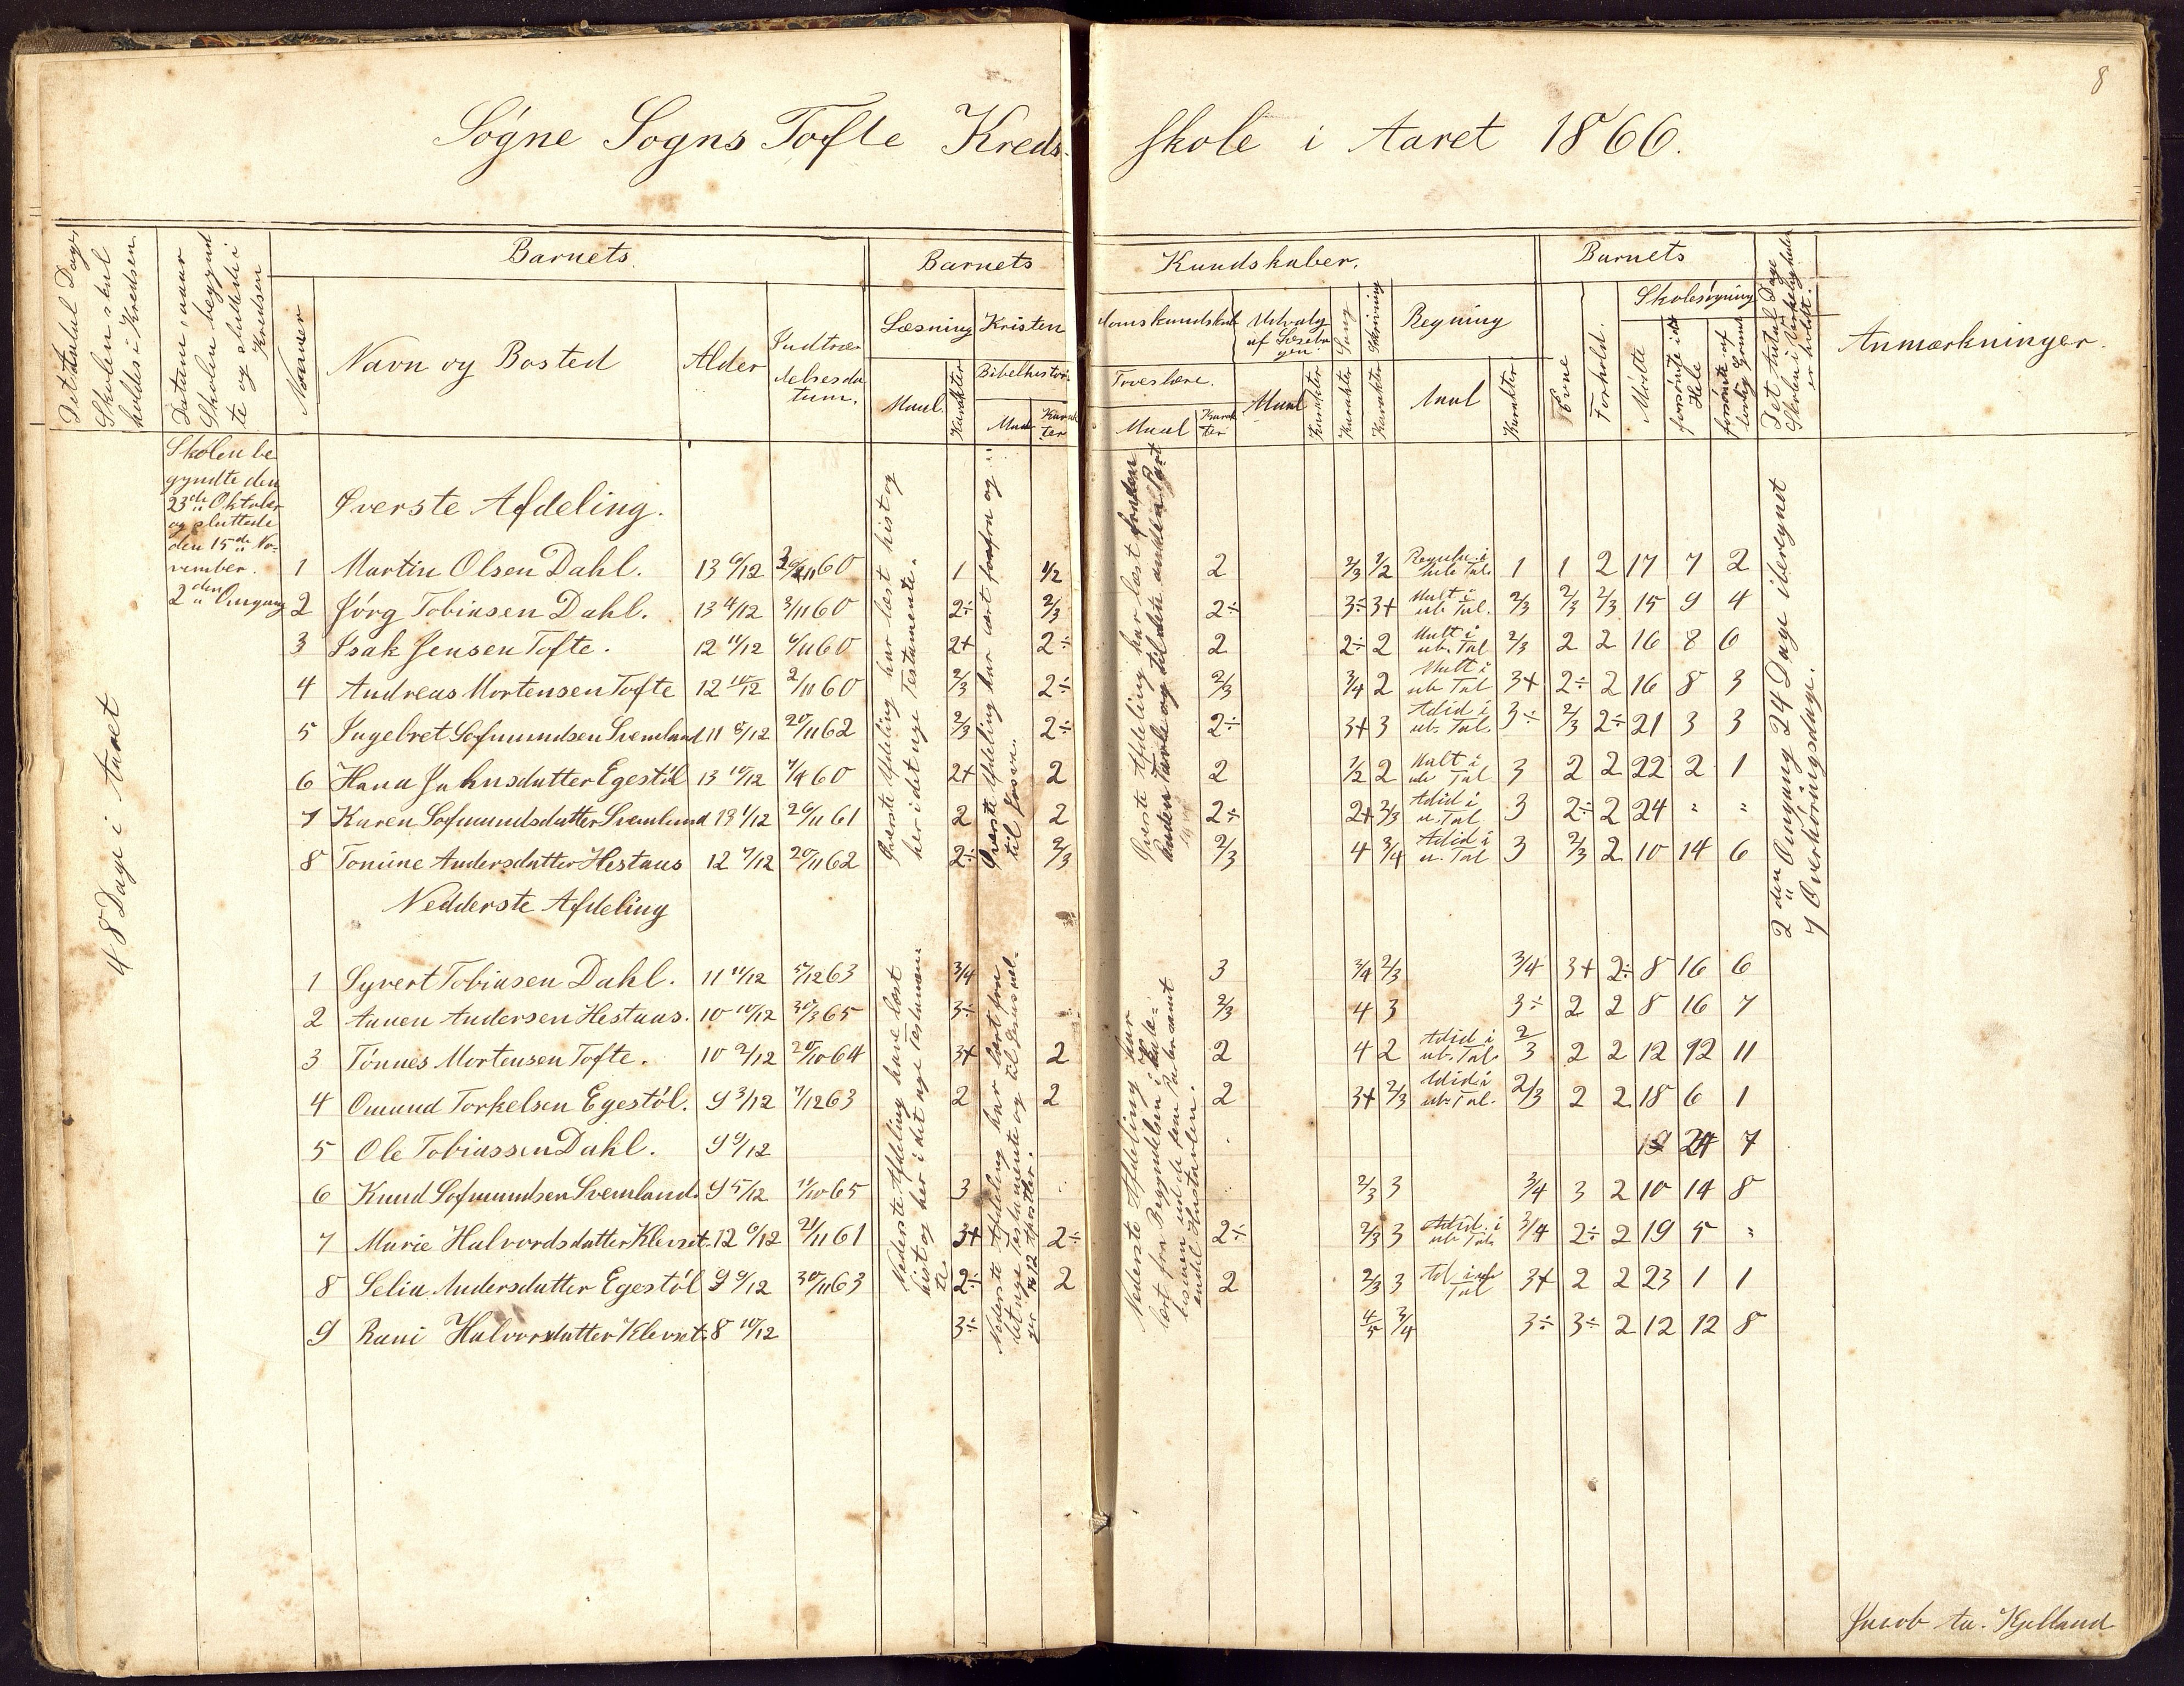 8
Søgne Sogns Tofte Kreds-
skole i Aaret 1866.
Det Antal Dage
Skolen skul
holdes i Kredsen.
Datum, naar
Skolen begynd
te og sluttede i
Kredsen
Barnets
Nummer
Navn og Bosted
Alder
Indtræ-
delsesda-
tum.
Barnets
Kundskaber.
Læsning
Maal.
Karakter
Kristen
domskundskab
Bibelhistorie
Maal
Karak
ter
Troeslære.
Maal
Karak
ter
Udvalg
af Læsebo-
gen
Maal
Karakter
Sang
Karakter
Skrivning
Karakter
Regning
Maal
Karakter
Barnets
Evne
Forhold.
Skolesøgning
Mødte
forsømte i det
Hele
forsømte af
lovlig Grund
Det Antal Dage
Skolen i Virkeligheden
er holdt.
Anmærkninger.
48 Dage i Aaret
Skolen be
gyndte den
23de Oktober
og sluttede
den 15de No-
vember.
2den Omgang
Øverste Afdeling.
1 Martin Olsen Dahl. 13 6/12 60 1 1/2 2 2/3 1/2 Regula i hele Tal. 1 1 2 17 7 2
2 Jörg Tobiasen Dahl. 13 4/12 3/11 60 2÷ 2/3 2÷ 3÷ 3+ Mult i ub. Tal. 2/3 2/3 2/3 15 9 4
3 Isak Jensen Tofte. 12 11/12 6/11 60 2+ 2÷ 2 2÷ 2 Mult i ub. Tal 2/3 2 2 16 8 6
4 Andreas Mortensen Tofte 12 10/12 2/11 60 2/3 2÷ 2/3 3/4 2 Mult i ub Tal 3+ 2÷ 2 16 8 3
5 Ingebret Sofmundsen Svemland 11 8/12 20/11 62 2/3 2÷ 2÷ 3+ 3 Adid i ub. Tal. 3÷ 2/3 2÷ 21 3 3
6 Hana Jahnsdatter Egestöl 13 10/12 7/4 60 2+ 2 2 1/2 2 Mult i ub Tal 3 2 2 22 2 1
7 Karen Sofmundsdatter Svemland 13 1/12 26/11 61 2 2 2÷ 2+ 3/3 Adid i u. Tal 3 2÷ 2 24 " "
8 Tomine Andersdatter Hestaas 12 7/12 20/11 62 2÷ 2/3 2/3 4 3/4 Adid i u. Tal 3 2/3 2 10 14 6
Øverste Afdeling har læst hist og
her i det nye Testamente.
Øverste Afdeling har lært forfra og
til
Øverste Afdeling har læst fra den
anden Tavle og til dette anden Part
2den Omgang 24 Dage iberegnet
7 Overhøringsdage.
Nedderste Afdeling
1 Syvert Tobiasen Dahl. 11 11/12 5/12 63 3/4 3 3/4 2/3 3/4 3+ 2÷ 8 16 6
2 Aanen Andersen Hestaas. 10 10/12 30/3 65 3÷ 2/3 4 3 3÷ 2 2 8 16 7
3 Tönnes Mortensen Tofte. 10 2/12 20/10 64 3+ 2 2 4 2 Adid i ub. Tal. 2/3 2 2 12 12 11
4 Omund Torkelsen Egestöl. 9 3/12 7/12 63 2 2 2 3+ 2/3 Adid i ub. Tal. 2/3 2 2 18 6 1
5 Ole Tobiassen Dahl. 9 9/12 24 7
6 Knud Sofmundsen Svemland. 9 5/12 11/10 65 3 2/3 3 3/4 3 2 10 14 8
7 Marie Halvordsdatter Klevset. 12 6/12 21/11 61 3+ 2÷ 2÷ 2/3 3 Adid. i ub Tal. 3/4 2÷ 2 19 5 "
8 Selia Andersdatter Egestöl 9 9/12 30/11 63 2÷ 2 2 2/3 3 Ad i ub Tal 3+ 2 2 23 1 1
9 Rani Halvorsdatter Klevset. 8 10/12 3÷ 4/5 3/4 3÷ 3÷ 2 12 12 8
Nederste Afdeling have læst
hist og her i det nye Testamen-
te.
Nederste Afdeling har lært fra
det nye Testamente og til Jesus væl-
ger 12 Apostler.
Nederste Afdeling har
lært fra Begyndelsen i Kate-
Jacob Aa. Kjelland